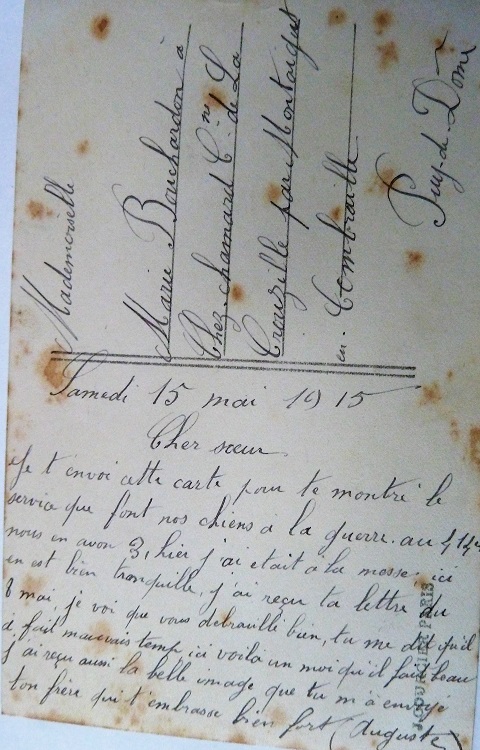 Mademoiselle
Marie Bouchardon à
Chez chamard Cne de La
Crouzille par Montaigut
en Combraille
Puy-de-Dôme
Samedi 15 mai 1915
Cher sœur
Je t'envoi cette carte pour te montré le
service que font nos chiens a la guerre. au
nous en avon 3, hier j'ai etait a la messe, ici
en est bien tranquille, j'ai reçu ta lettre du
8 mai, je voi que vous debrauillé bien, tu me dit qu'il
a fait mauvais temp ici voilà un moi qu'il fait beau
j'ai reçu aussi la belle image que tu m'a envoyé
ton frère qui t'embrasse bien fort Auguste
COURCIER PARIS